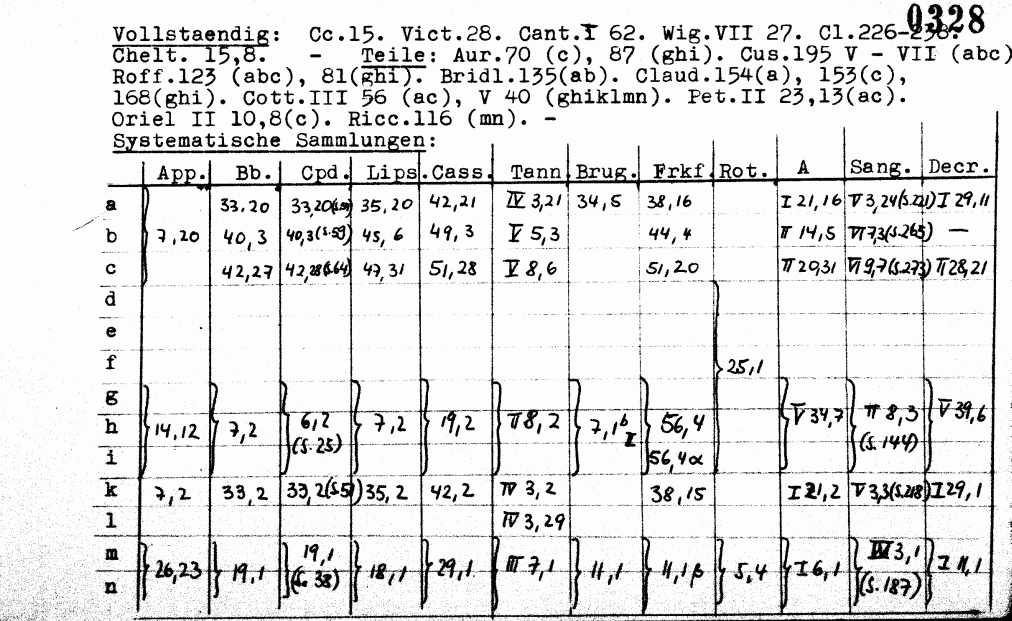 0328
Vollstaendig: Cc.15. Vict.28. Cant.I 62. Wig.VII 27. Cl.226-238.
Chelt. 15,8. - Teile: Aur.70 (c), 87 (ghi). Cus.195 V - VII (abc)
Roff.123 (abc), 81(ghi). Bridl.135(ab). Claud.154(a), 153(c),
168(ghi). Cott.III 56 (ac), V 40 (ghiklmn). Pet.II 23,13(ac).
Oriel II 10,8(c). Ricc.116 (mn). -
Systematische Sammlungen:
App. Bb. Cpd. Lips. Cass. Tann Brug. Frkf. Rot. A Sang. Decr.
a 33.20 33,20 35,20 42,21 IV 3,21 34,5 38,16 I 21,16 V 3,24(S.221) I 29,11
b 7,20 40,3 40,3(S.59) 45,6 49,3 V 5,3 44,4 II 14,5 VI 7,3(S.265) —
c 42,27 42,28(S.64) 47,31 51,28 V 8,6 51,20 II 20,31 VI 9,7(S.273) II 28,21
d
e
f 25,1
g
h 14,12 7,2 6,2 (S.25) 7,2 19,2 II 8,2 7,1b I 56,4 V 34,7 II 8,3 (S.144) V 39,6
i 56,4α
k 7,2 33,2 33,2(S.51) 35,2 42,2 IV 3,2 38,15 I 21,2 V 3,3(S.218) I 29,1
l IV 3,29
m 26,23 19,1 19,1 (S.38) 18,1 29,1 III 7,1 11,1 11,1β 5,4 I 6,1 IV 3,1 (S.187) I 11,1
n